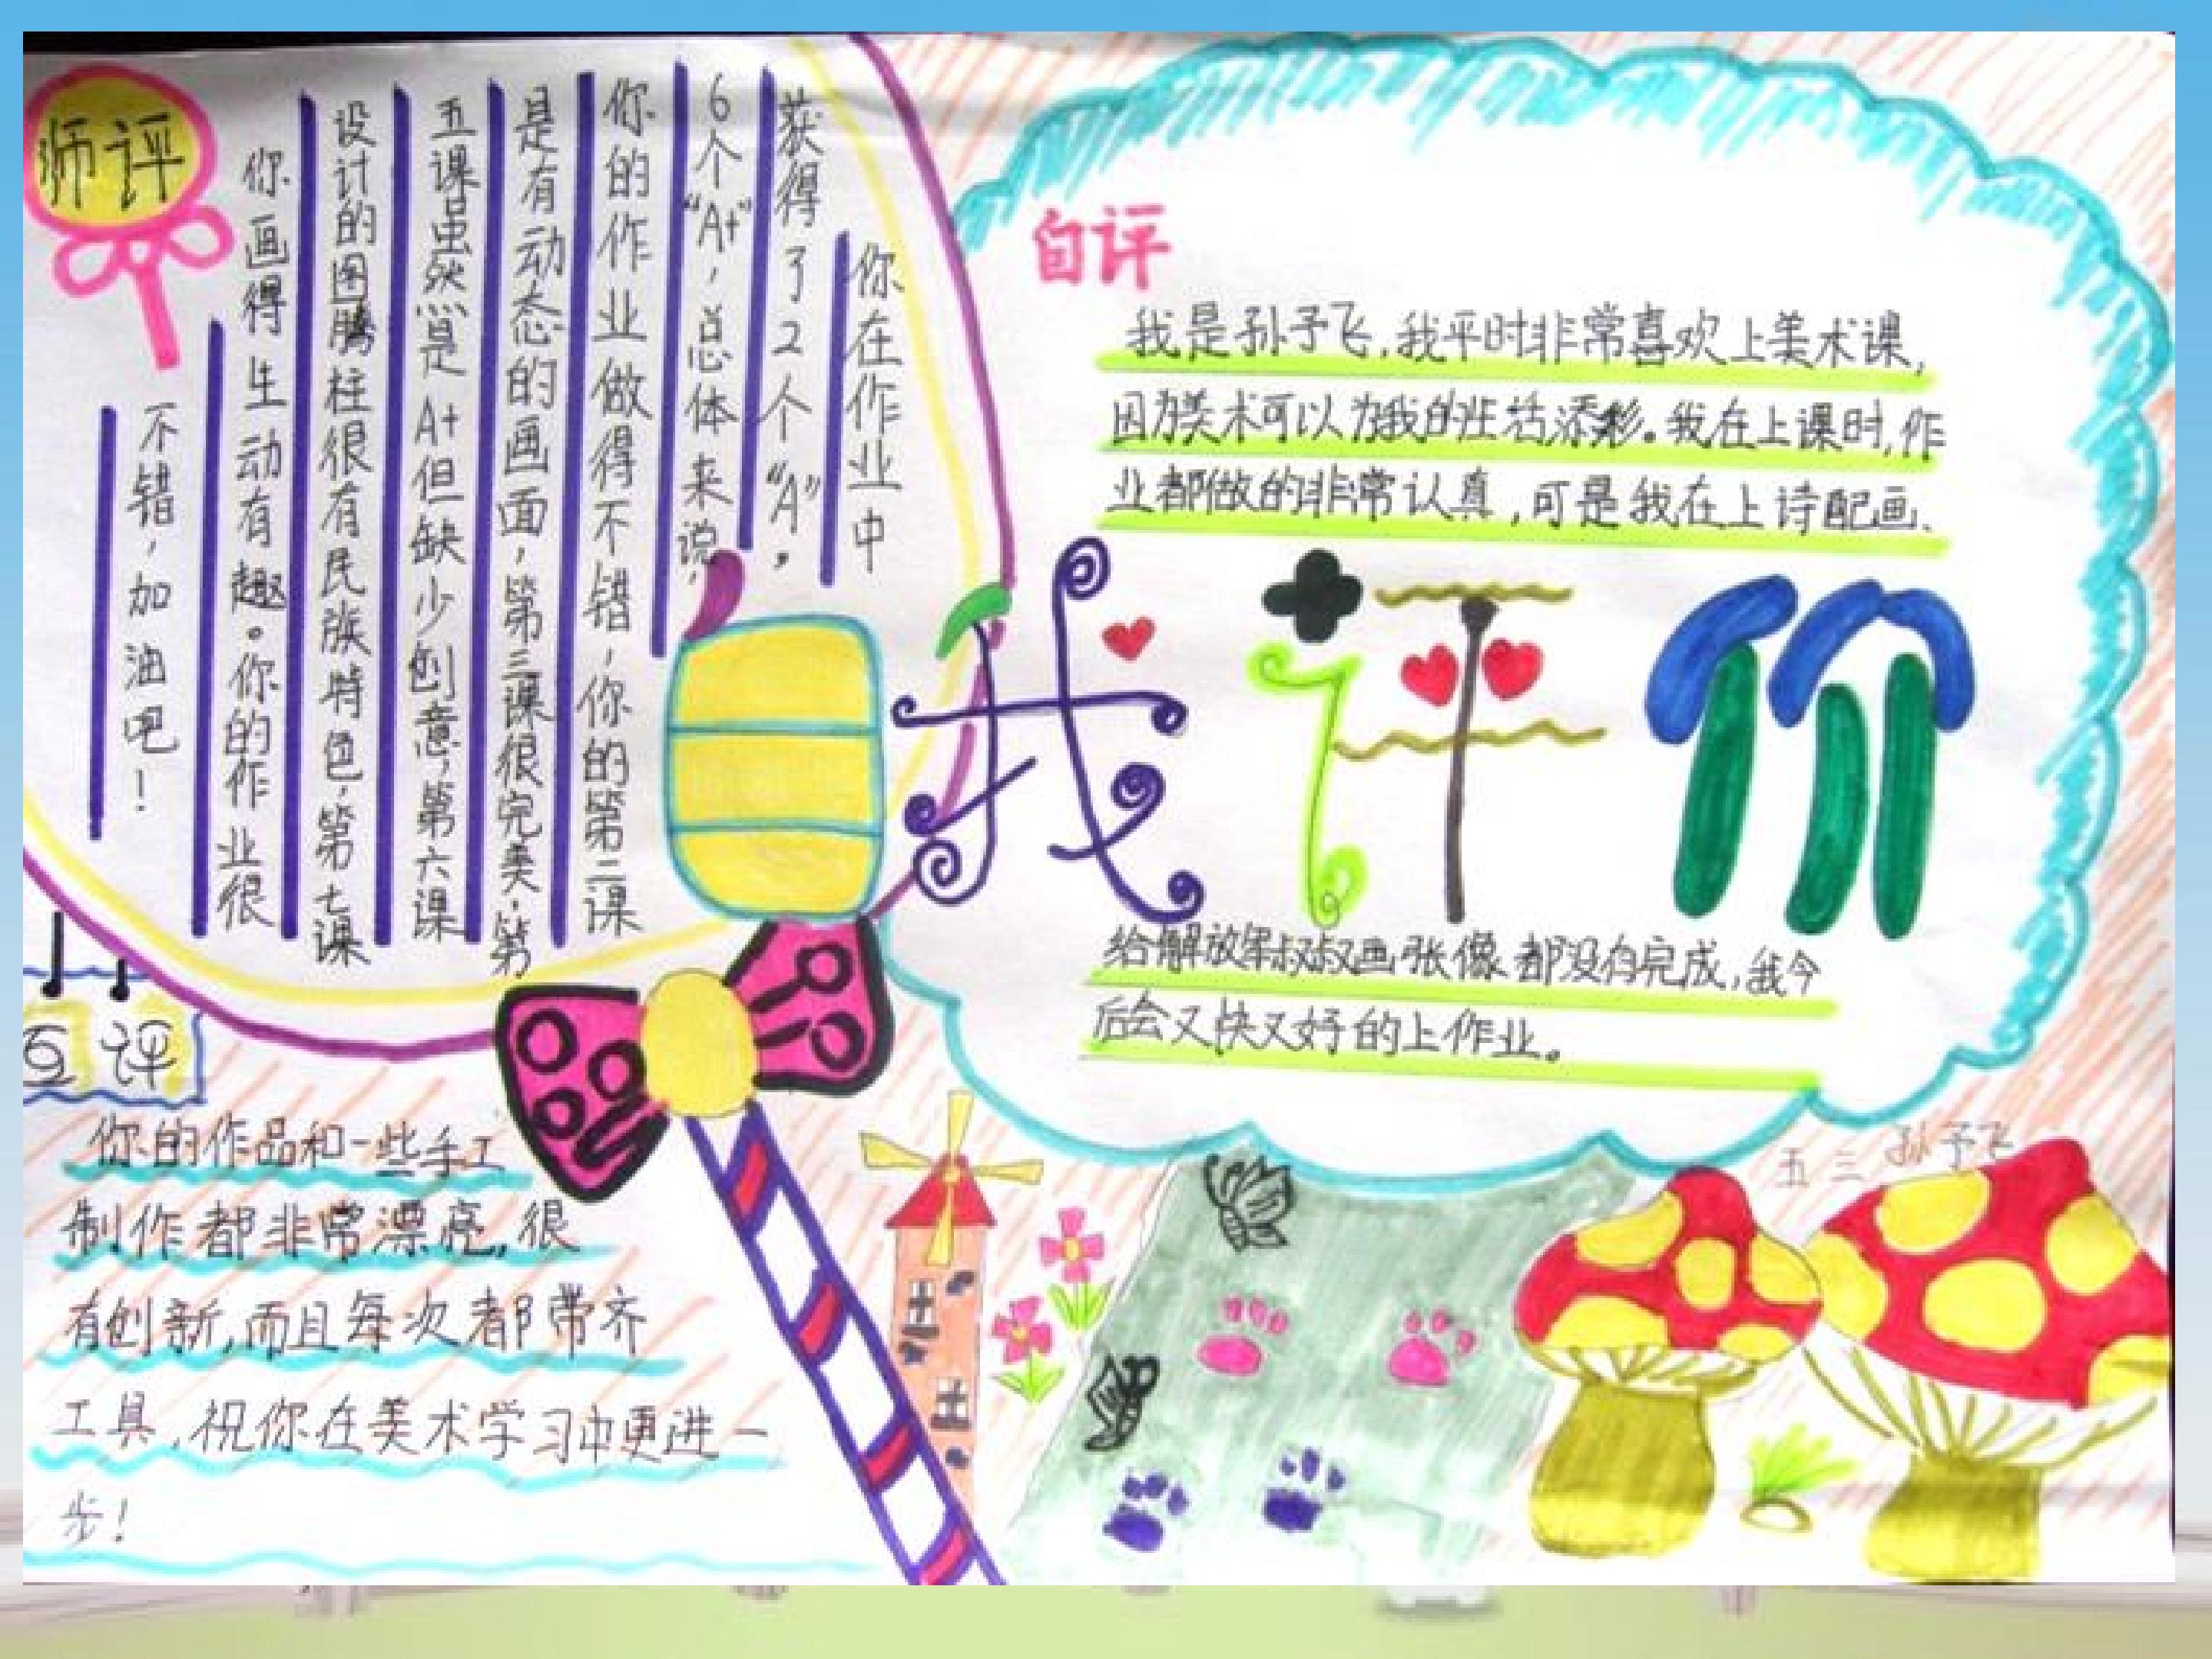 师评
你在作业中
获得了2个“A”。
6个“A+”,总体来说,
你的作业做得不错,你的第二课
是有动态的画面,第三课很完美,第
五课虽然是A+但缺少创意,第六课
设计的图腾柱很有民族特色,第七课
你画得生动有趣。你的作业很
不错,加油吧!
自评
我是孙予飞,我平时非常喜欢上美术课,
因为美术可以为我的生活添彩。我在上课时,作
业都做的非常认真,可是我在上诗配画、
我评价
给解放军叔叔画张像都没有完成,我今
后会又快又好的上作业。
五三 孙予飞
互评
你的作品和一些手工
制作都非常漂亮,很
有创新,而且每次都带齐
工具,祝你在美术学习中更进一
步!